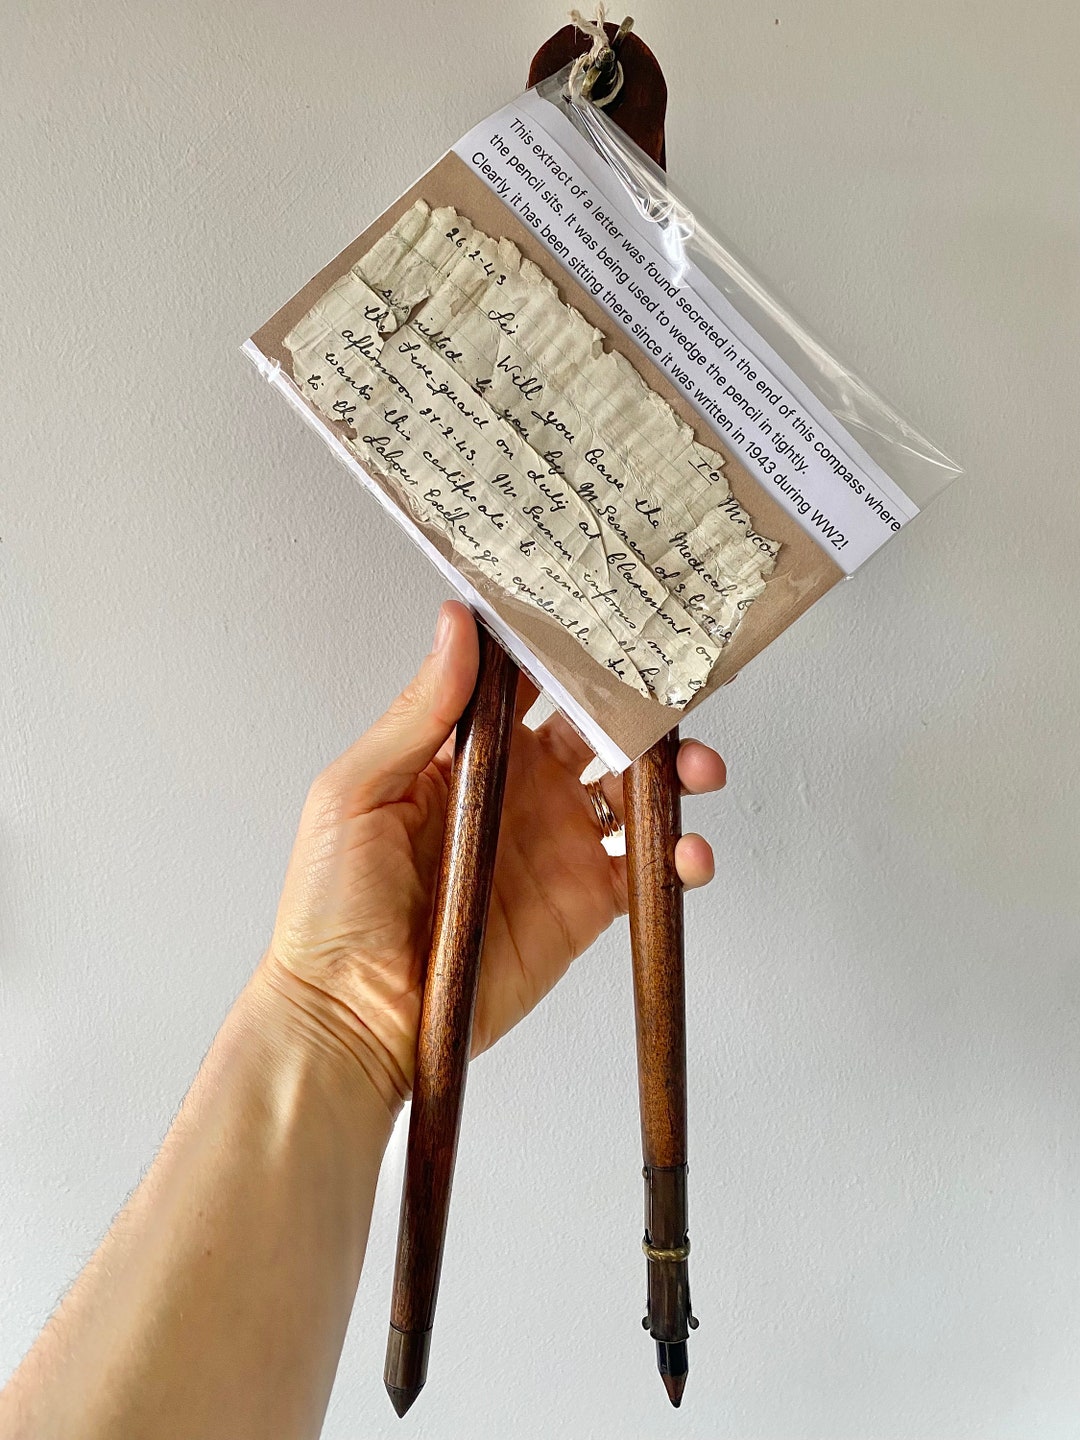 This extract of a letter was found secreted in the end of this compass where
the pencil sits. It was being used to wedge the pencil in tightly.
Clearly, it has been sitting there since it was written in 1943 during WW2!
26-2-43
To Mr
Sir Will you leave the Medical
submitted to you by Mr Sernan of 3
the fire-guard on duty at Claremont on
afternoon 27-2-43. Mr Sernan informs me
wants this certificate to send
to the Labour Exchange, evidently he